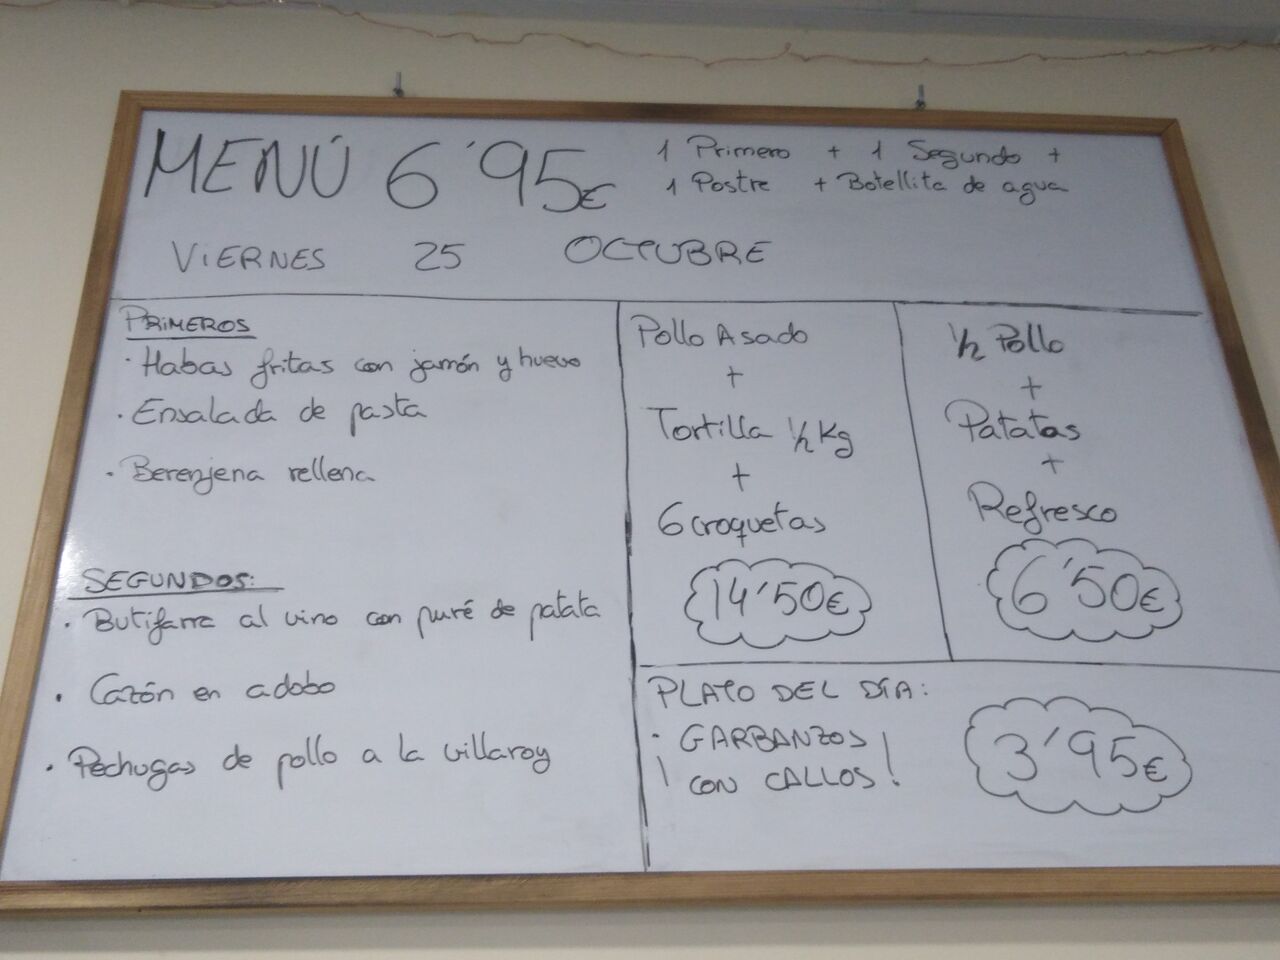 MENÚ 6'95€
1 Primero + 1 Segundo +
1 Postre + Botellita de agua
VIERNES 25 OCTUBRE
PRIMEROS
· Habas fritas con jamón y huevo
· Ensalada de pasta
· Berenjena rellena
SEGUNDOS:
· Butifarra al vino con puré de patata
· Cazón en adobo
· Pechugas de pollo a la villaroy
Pollo Asado
+
Tortilla ½ Kg
+
6 croquetas
14'50€
½ Pollo
+
Patatas
+
Refresco
6'50€
PLATO DEL DÍA:
· GARBANZOS
¡CON CALLOS!
3'95€